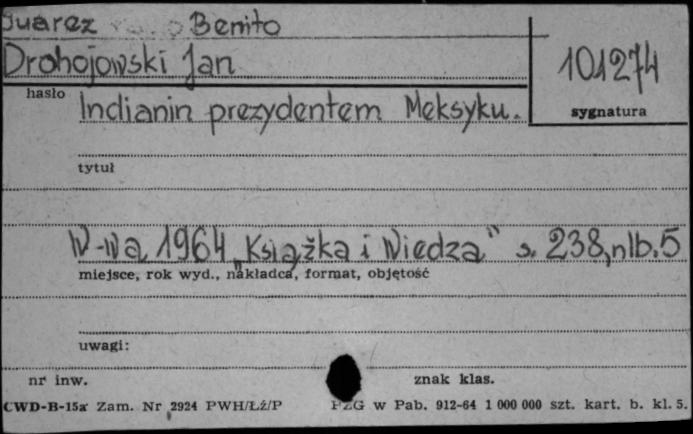 Juarez Benito
Drohojowski Jan
101274
hasło
sygnatura
Indianin prezydentem Meksyku.
tytuł
W-wa 1964 „Książka i Wiedza" s. 238, nlb. 5
miejsce, rok wyd., nakładca, format, objętość
uwagi:
nr inw. znak klas.
CWD-B-15a Zam. Nr 2924 PWH/Łź/P PZG w Pab. 912-64 1 000 000 szt. kart. b. kl. 5.